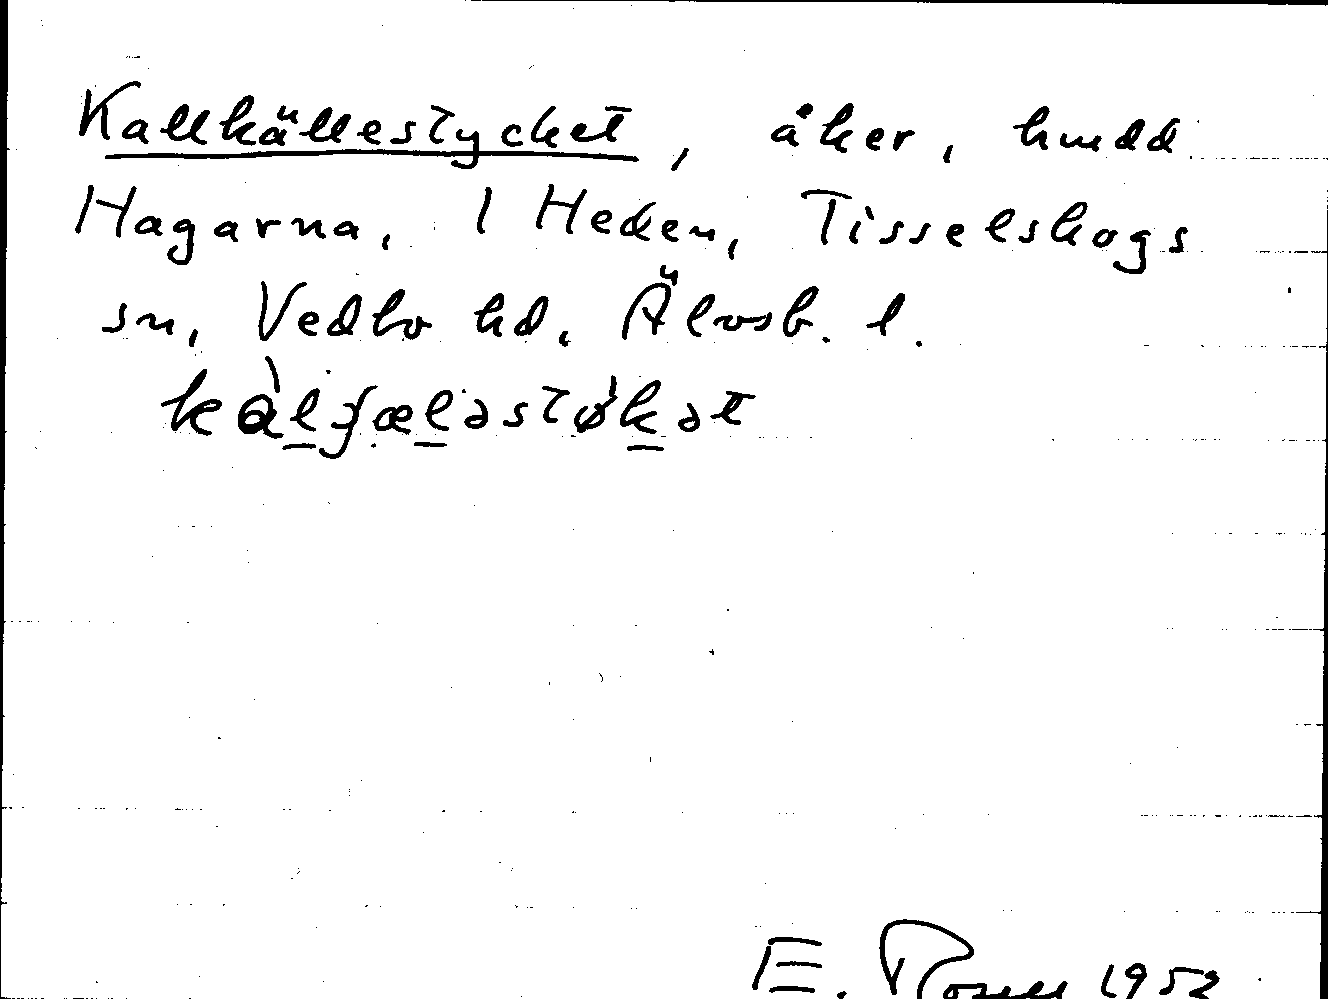 Kallkällestycket, åker, hmdd
Hagarna, 1 Heden, Tisselskogs
sn, Vedbo hd, Älvsb. l.
E. Rosell 1952